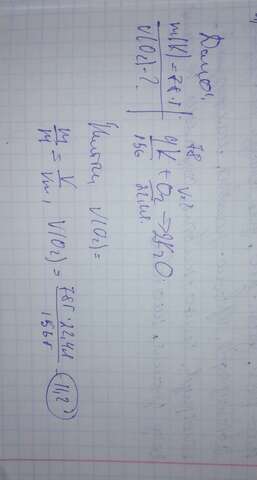 Дано:
m(K) = 78 г
V(O2) - ?
78 V=?
4K + O2 → 2K2O
156 22,4л
V(O2) =
m/M = V/Vm, V(O2) = 78г · 22,4л / 156г = 11,2